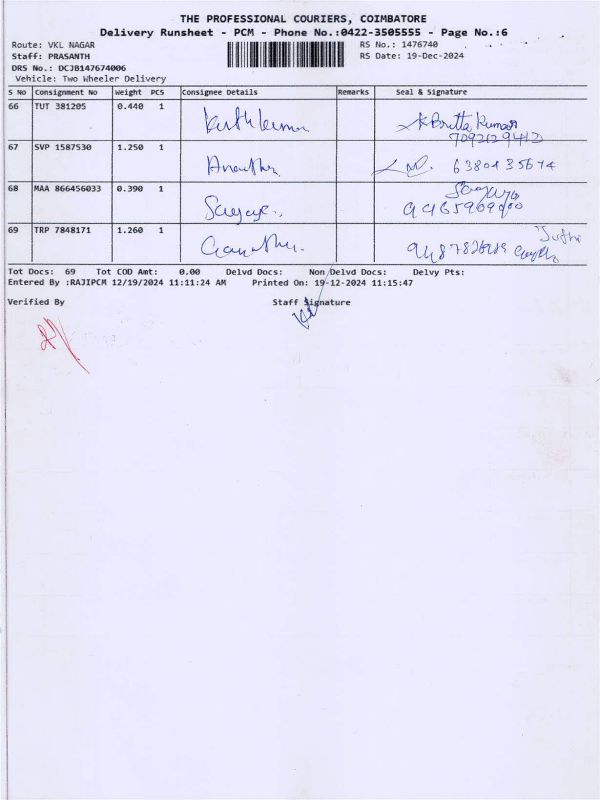 THE PROFESSIONAL COURIERS, COIMBATORE
Delivery Runsheet - PCM - Phone No.:0422-3505555 - Page No.:6
Route: VKL NAGAR RS No.: 1476740
Staff: PRASANTH RS Date: 19-Dec-2024
DRS No.: DCJB147674006
Vehicle: Two Wheeler Delivery
S No Consignment No Weight PCS Consignee Details Remarks Seal & Signature
66 TUT 381205 0.440 1
7092129412
67 SVP 1587530 1.250 1
68 MAA 866456033 0.390 1
69 TRP 7848171 1.260 1
Tot Docs: 69 Tot COD Amt: 0.00 Delvd Docs: Non Delvd Docs: Delvy Pts:
Entered By :RAJIPCM 12/19/2024 11:11:24 AM Printed On: 19-12-2024 11:15:47
Verified By Staff Signature